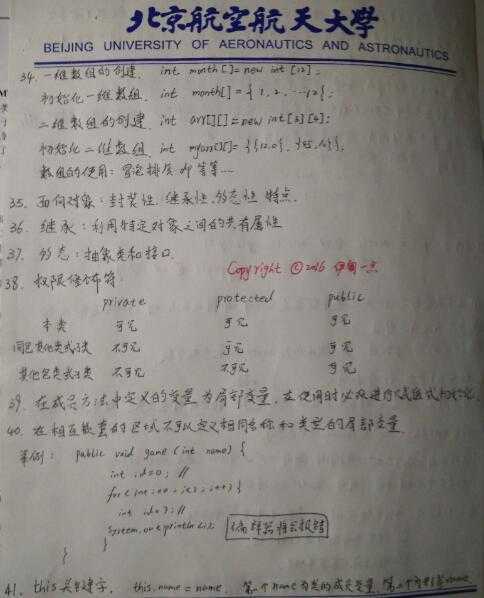 北京航空航天大学
BEIJING UNIVERSITY OF AERONAUTICS AND ASTRONAUTICS
34. 一维数组的创建. int month[]=new int[12];
初始化一维数组. int month[]={1,2,…12};
二维数组的创建. int arr[][]=new int[3][4];
初始化二维数组. int myarr[][]=
数组的使用：冒泡排序 等等…
35. 面向对象：封装性. 继承性. 多态性 特点.
36. 继承：利用特定对象之间的共有属性
37. 多态：抽象类和接口.
Copyright ©2016 伊甸一点
38. 权限修饰符：
private protected public
本类 可见 可见 可见
同包其他类或子类 不可见 可见 可见
其他包类或子类 不可见 不可见 可见
39. 在成员方法中定义的变量为局部变量，在使用时必须进行赋值或初始化
40. 在相互嵌套的区域不可以定义相同名称和类型的局部变量
举例： public void game (int name) {
int id=0; //
for(int i=0; i<3; i++) {
int id=7; //
System.out.println(i);
编译器将会报错
}
}
41. this关键字. this.name = name. 第一个name为类的成员变量,